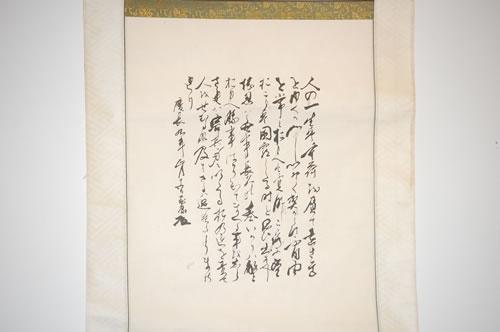 人の一生は重荷を負て遠き道
をゆくが如しいそぐべからず不自由
を常とおもへば不足なしこころに望
おこらば困窮したる時を思ひ出すべし
堪忍は無事長久の基いかりは敵と
おもへ勝事ばかりしりてまくる事をしら
ざれば害其身にいたるおのれを責て
人をせむるな及ばざるは過たるよりまさ
れり
慶長
家康